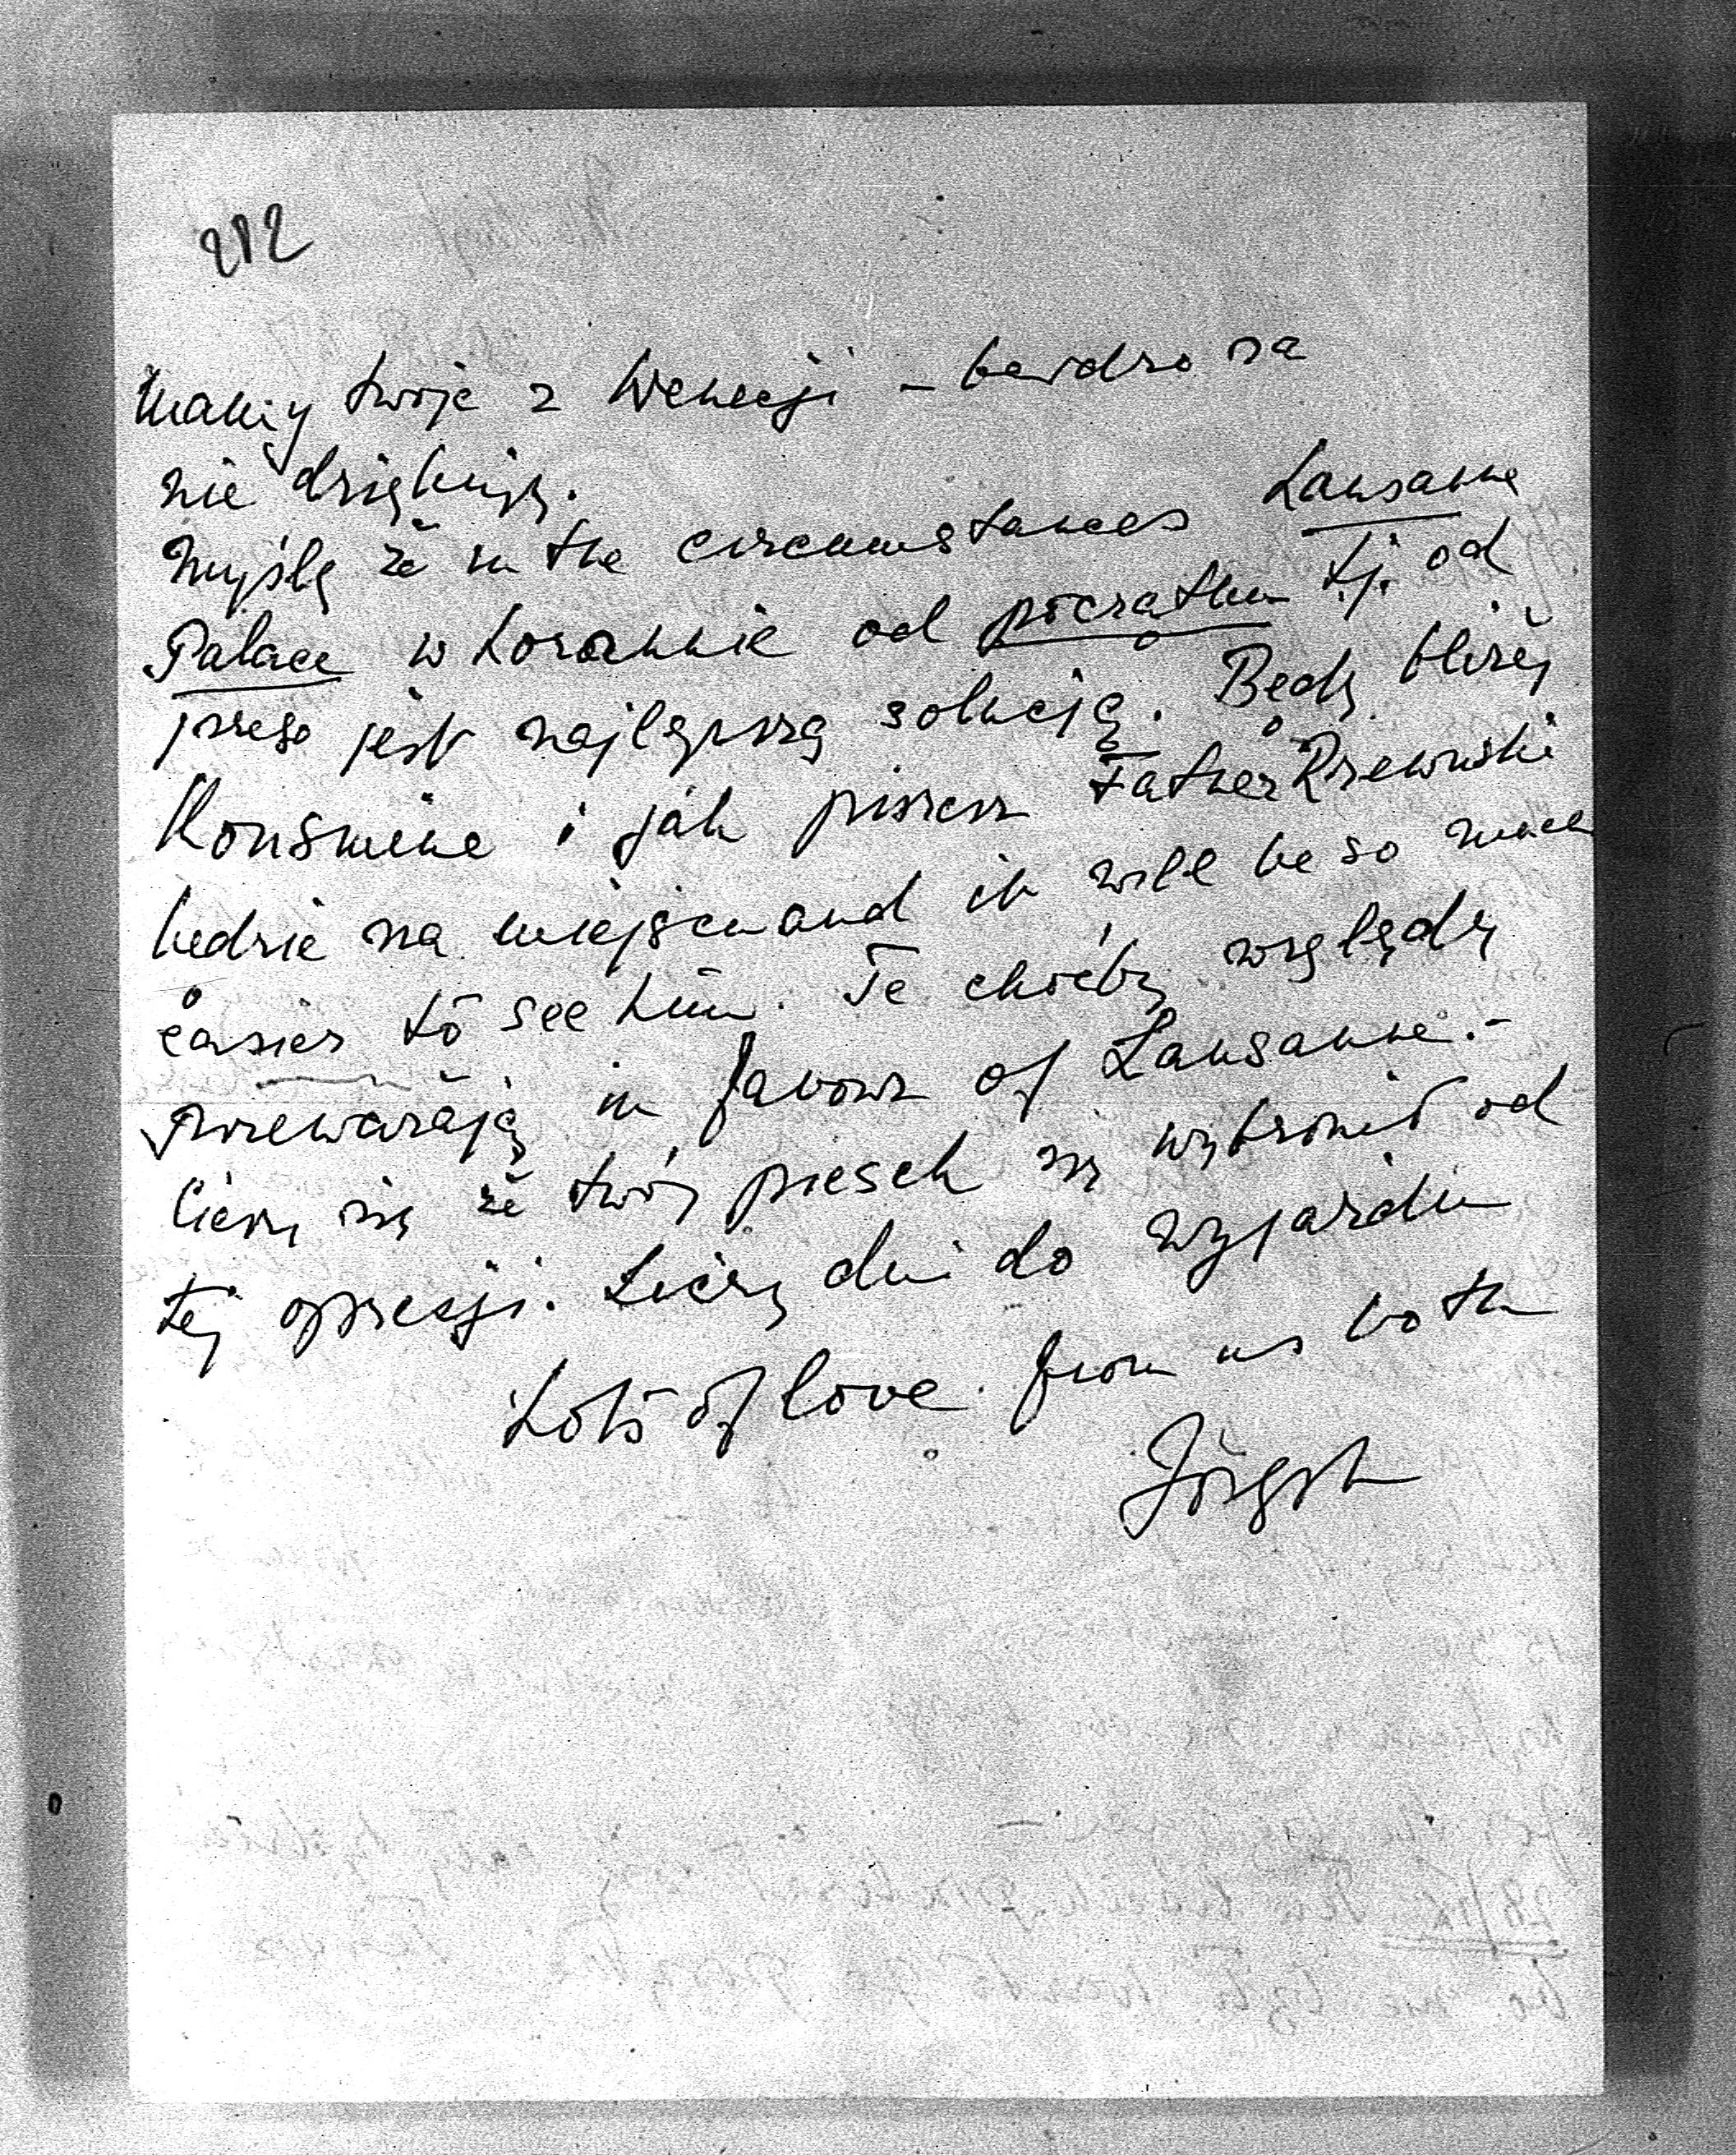 212
twoje z Wenecji – bardzo za
nie dziękuję.
Myślę że in the circumstances Lausanne
Palace w Lozannie od początku t.j. od
jest najlepszą solucją. Będę bliżej
i jak piszesz Father Rzewuski
będzie na miejscu and it will be so much
easier to see him. Te choćby względy
przeważają in favour of Lausanne.-
Cieszę się że twój piesek się wybronił od
tej opresji. Liczę dni do wyjazdu
Lots of love from us both